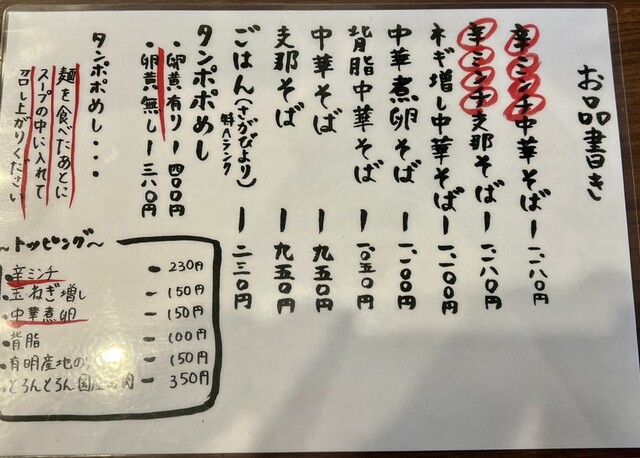 お品書き
辛ミンチ中華そば ー 一、一八〇円
辛ミンチ支那そば ー 一、一八〇円
ネギ増し中華そば ー 一、一〇〇円
中華煮卵そば ー 一、一〇〇円
背脂中華そば ー 一、〇五〇円
中華そば ー 九五〇円
支那そば ー 九五〇円
ごはん(さがびより) ー 二三〇円
特Aランク
タンポポめし
・卵黄有り ー 四〇〇円
・卵黄無し ー 三八〇円
タンポポめし・・・
麺を食べたあとに
スープの中に入れて
召し上がりください
〜トッピング〜
・辛ミンチ ー 230円
・玉ねぎ増し ー 150円
・中華煮卵 ー 150円
・背脂 ー 100円
・有明産地の ー 150円
・とろんとろん国産 肉 ー 350円